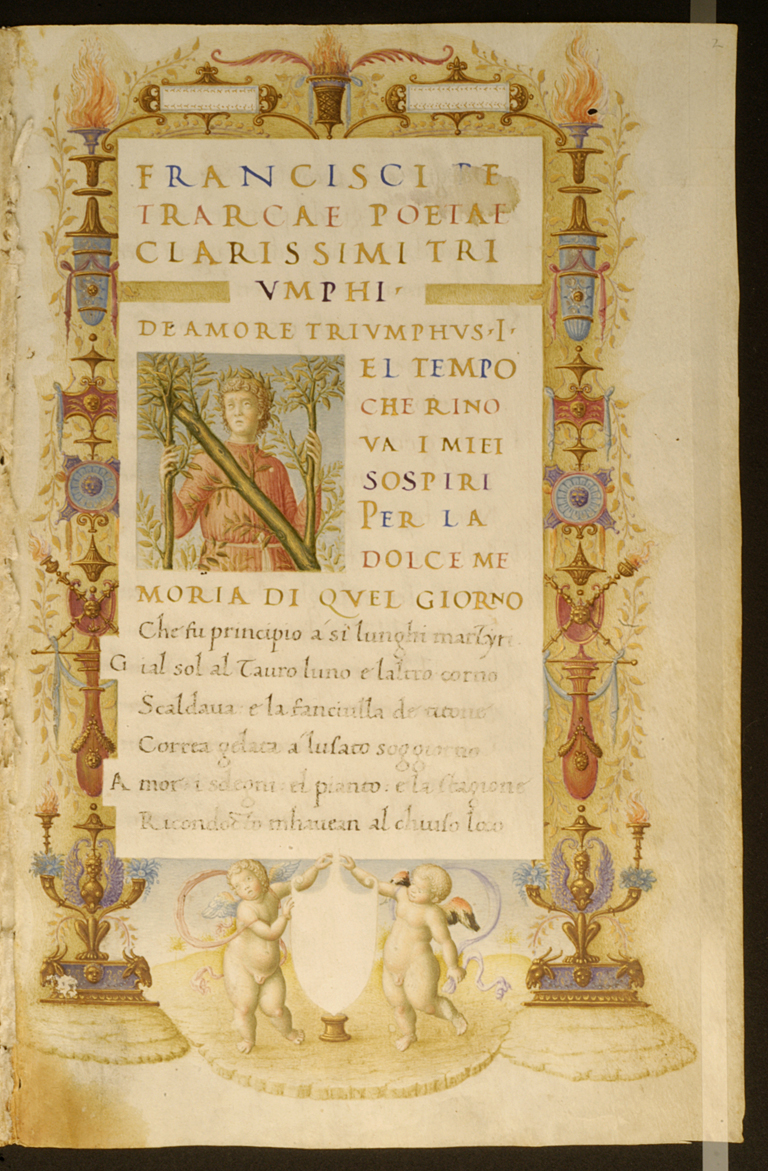 2
FRANCISCI PE
TRARCAE POETAE
CLARISSIMI TRI
VMPHI
DE AMORE TRIVMPHVS I
NEL TEMPO
CHE RINO
VA I MIEI
SOSPIRI
PER LA
DOLCE ME
MORIA DI QVEL GIORNO
Che fu principio a si lunghi martyri
Gial sol al Tauro luno e laltro corno
Scaldaua: e la fanciulla de titone
Correa gelata al usato soggiorno
Amor: i sdegni: el pianto: e la stagione
Ricondotto mhauean al chiuso loco